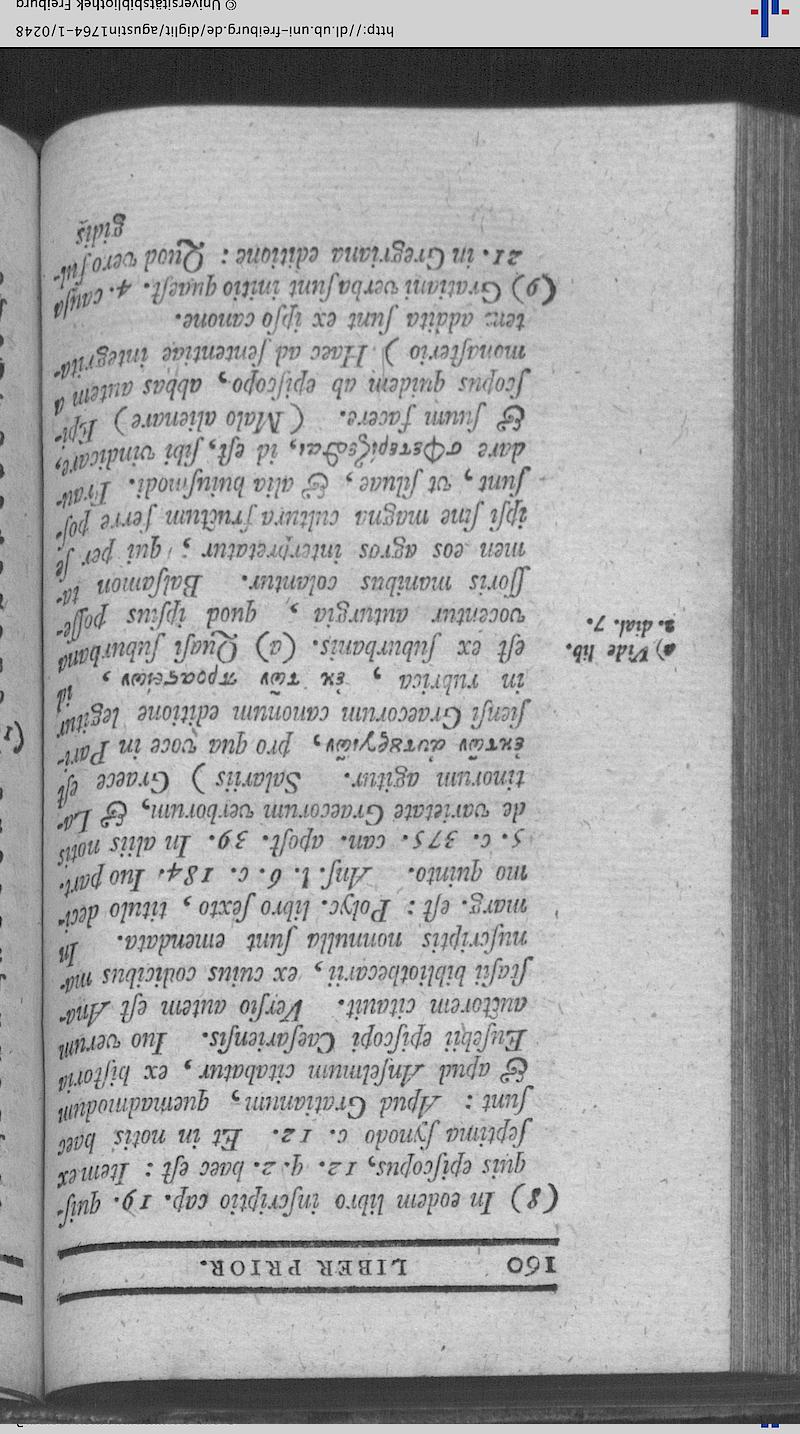 160 LIBER PRIOR.
(8) In eodem libro inscriptio cap. 19. quis-
quis episcopus, 12. q. 2. haec est : Item ex
septima synodo c. 12. Et in notis haec
sunt : Apud Gratianum, quemadmodum
& apud Anselmum citabatur, ex historia
Eusebii episcopi Caesariensis. Iuo verum
auctorem citauit. Versio autem est Ana-
stasii bibliothecarii, ex cuius codicibus ma-
nuscriptis nonnulla sunt emendata. In
marg. est : Polyc. libro sexto, titulo deci-
mo quinto. Ans. l. 6. c. 184. Iuo part.
5. c. 375. can. apost. 39. In aliis notis
de varietate Graecorum verborum, & La-
tinorum agitur. Salariis ) Graece est
ἐκ τῶν ἀυτȣργιῶν, pro qua voce in Pari-
siensi Graecorum canonum editione legitur
in rubrica , ἐκ τῶν προαστείων , id
est ex suburbanis. (a) Quasi suburbana
vocentur auturgia , quod ipsius posse-
ssoris manibus colantur. Balsamon ta-
men eos agros interpretatur ; qui per se
ipsi sine magna cultura fructum ferre pos-
sunt , vt siluae, & alia huiusmodi. Frau-
dare σφετερίζεσθαι, id est, sibi vindicare,
& suum facere. ( Malo alienare ) Epi-
scopus quidem ab episcopo, abbas autem a
monasterio ) Haec ad sententiae integrita-
tem addita sunt ex ipso canone.
(9) Gratiani verba sunt initio quaest. 4. causa
21. in Gregriana editione : Quod vero ful-
gidis
a) Vide lib.
2. dial. 7.
http://dl.ub.uni-freiburg.de/diglit/agustin1764-1/0248
© Universitätsbibliothek Freiburg